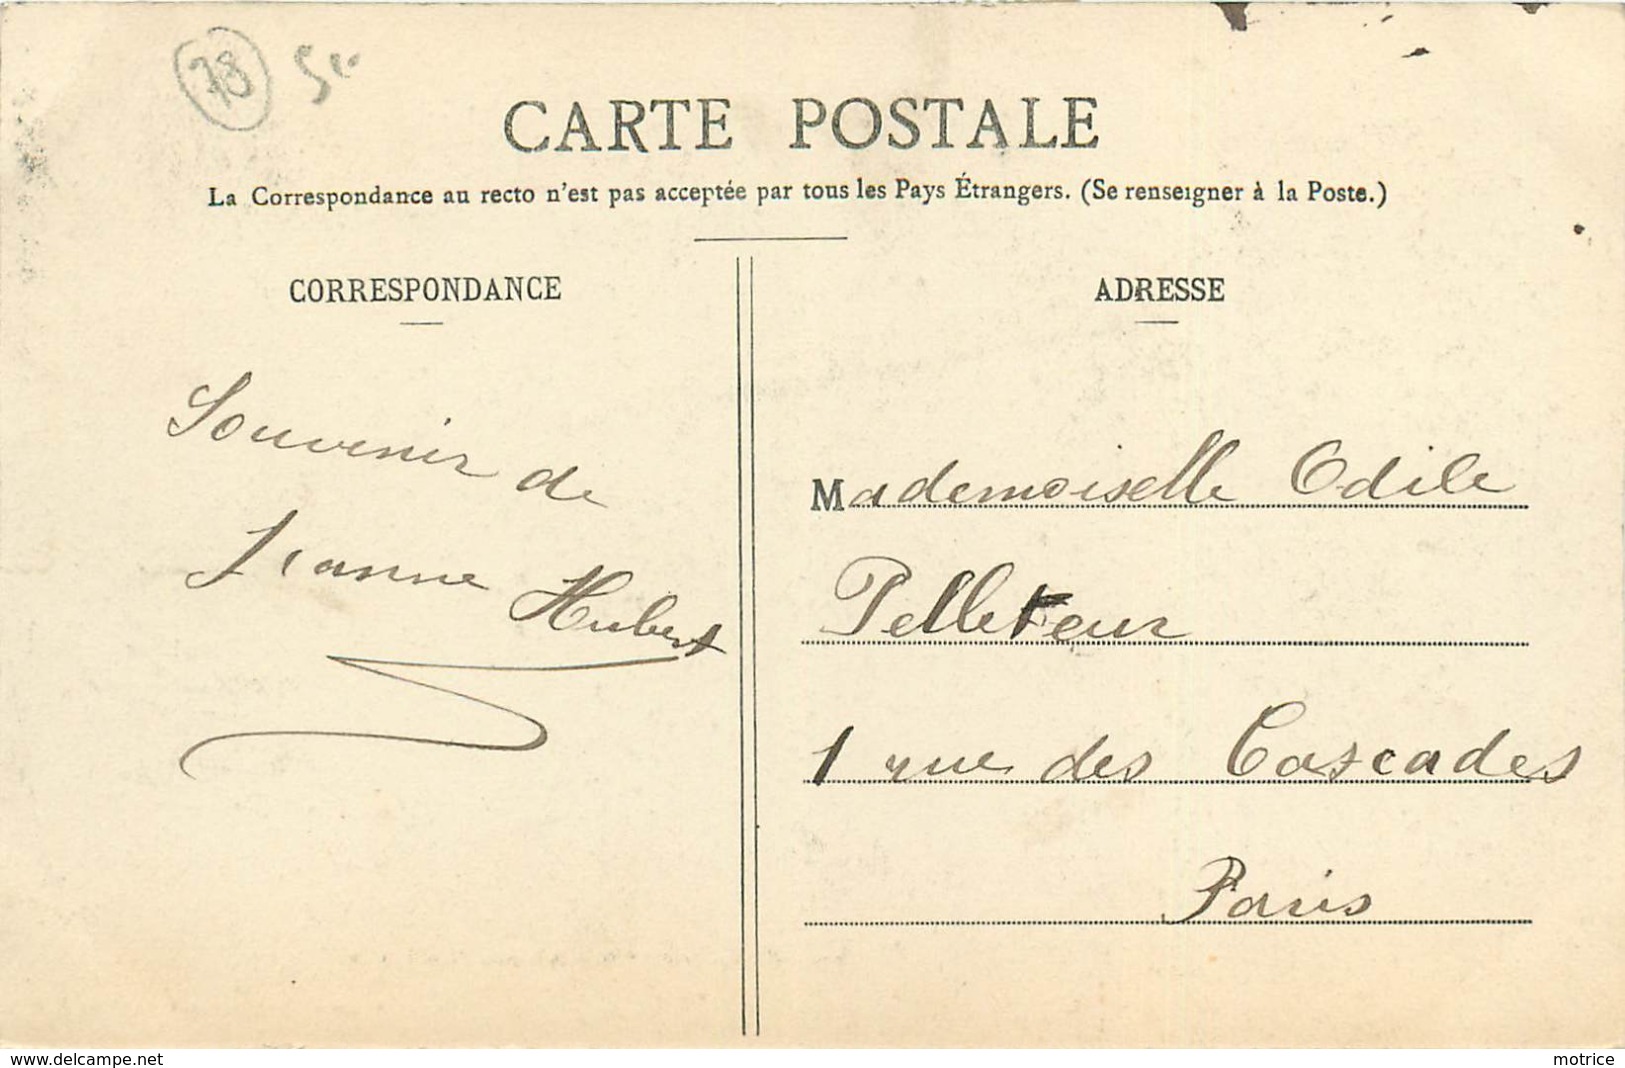 78
CARTE POSTALE
La Correspondance au recto n'est pas acceptée par tous les Pays Étrangers. (Se renseigner à la Poste.)
CORRESPONDANCE
Souvenir de
Jeanne Hubert
ADRESSE
Mademoiselle Odile
Pelleteur
1 rue des Cascades
Paris
www.delcampe.net
motrice